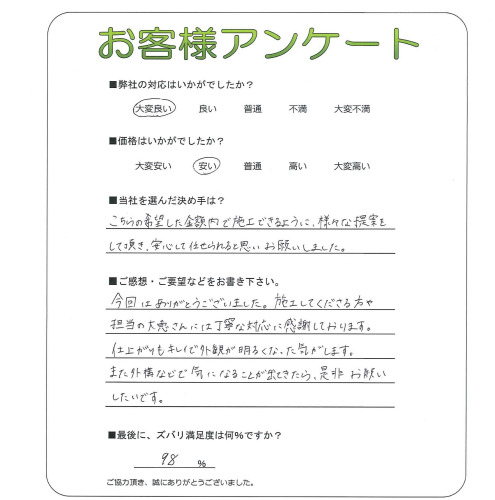 お客様アンケート
■弊社の対応はいかがでしたか？
大変良い 良い 普通 不満 大変不満
■価格はいかがでしたか？
大変安い 安い 普通 高い 大変高い
■当社を選んだ決め手は？
こちらの希望した金額内で施工できるように、様々な提案を
して頂き、安心して任せられると思いお願いしました。
■ご感想・ご要望などをお書き下さい。
今回はありがとうございました。施工してくださる方や
担当の大惠さんには丁寧な対応に感謝しております。
仕上がりもキレイで外観が明るくなった気がします。
また外構などで気になることが出てきたら、是非お願い
したいです。
■最後に、ズバリ満足度は何%ですか？
98 %
ご協力頂き、誠にありがとうございました。